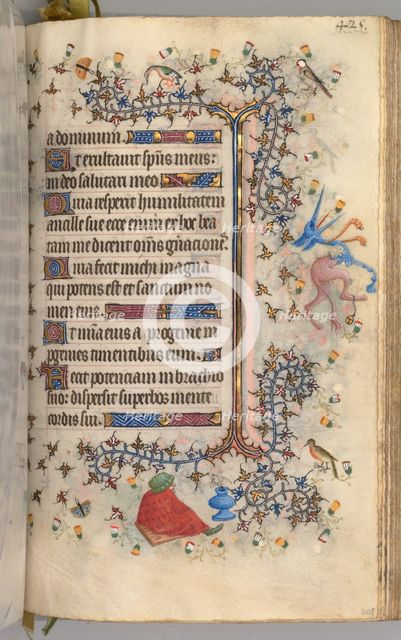 425.
a dominum.
Et exultavit spūs meus:
in deo salutari meo
Quia respexit humilitatem
ancille sue ecce enim ex hoc bea
tam me dicent om̄s gn̄acioneˢ.
Quia fecit michi magna
qui potens est et sanctum no
men eius.
Et mīa eius a progenie in
progenies timentibus eum.
Fecit potenciam in brachio
suo: dispersit superbos mente
cordis sui.
Heritage Images